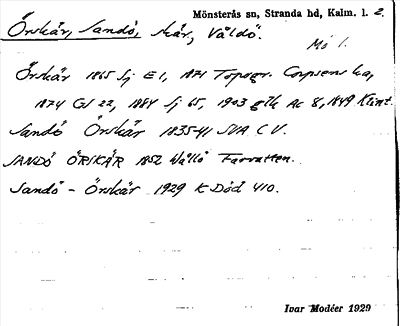 Mönsterås sn, Stranda hd, Kalm. l. 2.
Örskär, Sandö, skär, Våldö.
Mö 1.
Örskär 1865 Sj E1, 1871 Topogr. Corpsens ka,
1874 GS 22, 1884 Sj 65, 1903 gtk Ac 8, 1849 Klint.
Sandö Örskär 1835-41 SVA C V.
SANDÖ ÖRSKÄR 1852 Wållö Farvatten.
Sandö - Örskär 1929 K Död 410.
Ivar Modéer 1929